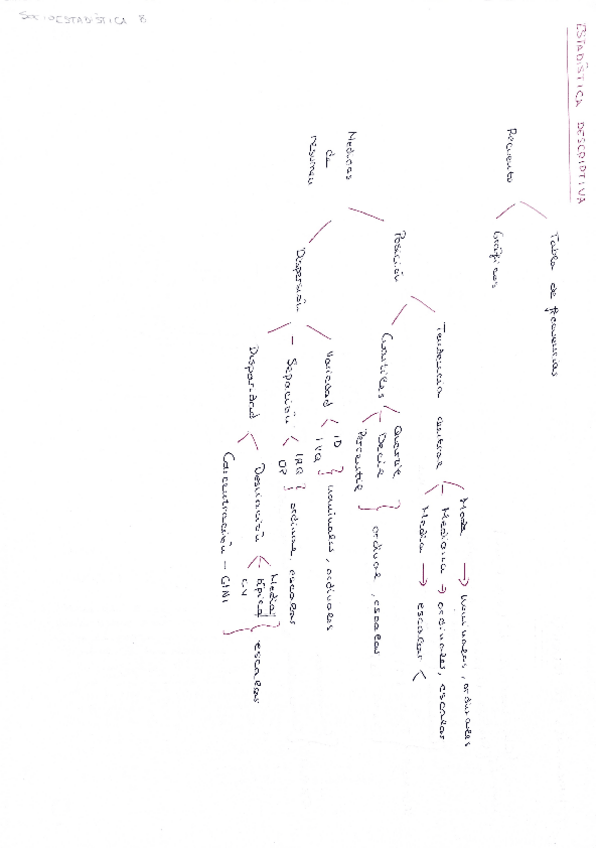 SOCIOESTADÍSTICA B
ESTADÍSTICA DESCRIPTIVA
Recuento
Tabla de frecuencias
Gráficos
Medidas
de
resumen
Posición
Tendencia central
Moda → nominales, ordinales
Mediana → ordinales, escalar
Media → escalar
Cuantiles
Cuartil
Decil
Percentil
ordinal, escalar
Dispersión
Variedad
ID
IVQ
nominales, ordinales
Separación
IRQ
DP
ordinal, escalar
Disparidad
Desviación
Media
típica
CV
Concentración - GINI
escalar